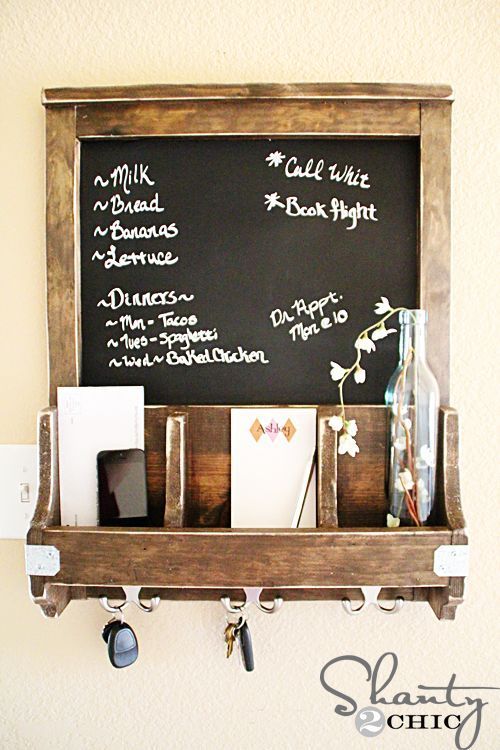 ~Milk
~Bread
~Bananas
~Lettuce
*Call Whit
*Book flight
~Dinners~
~Mon = Tacos
~Tues = Spaghetti
~Wed ~ Baked Chicken
Dr Appt.
Mon @ 10
Ashley
Shanty
2 CHIC